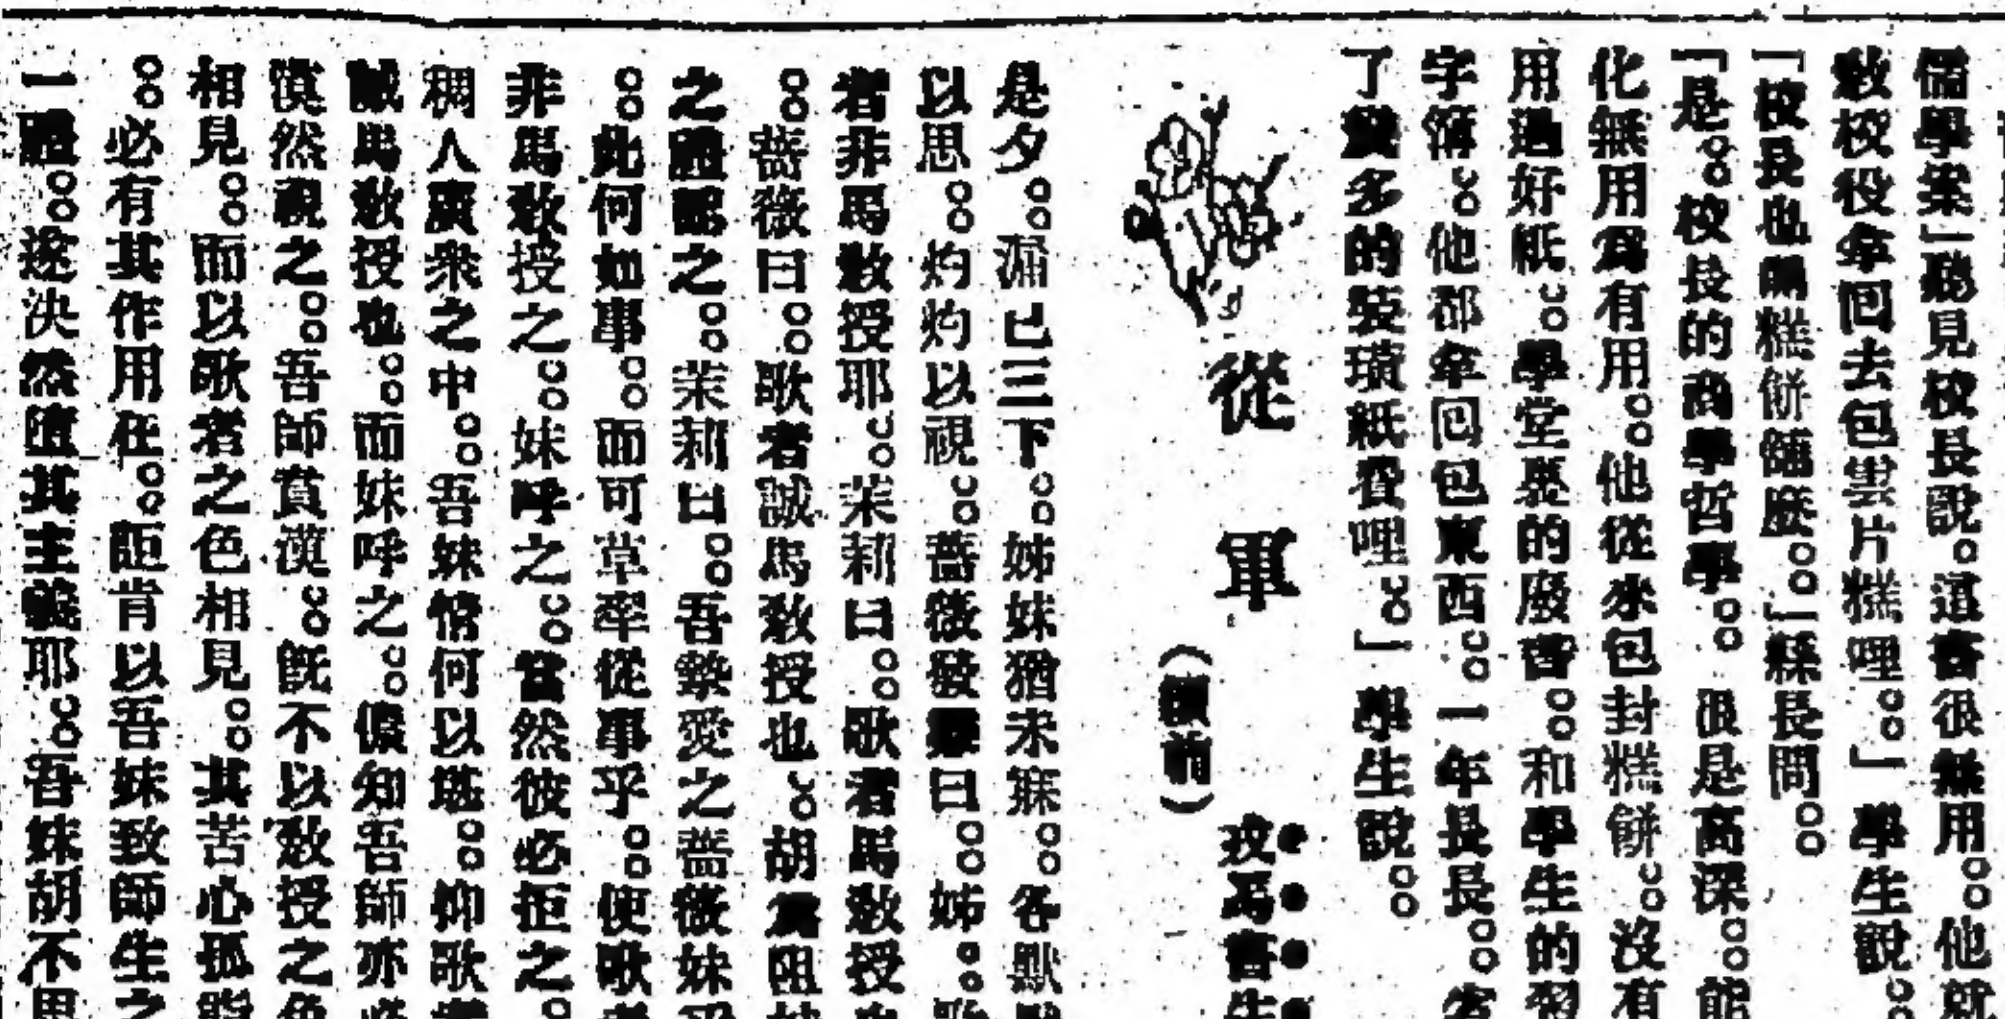 儒學案」聽見校長說。這書很無用。。他就
教校役拿回去包雲片糕哩。。」學生說。
「校長也開糕餅舖麽。。」縣長問。。
「是。。校長的商學哲學。。很是高深。。能
化無用爲有用。。他從來包封糕餅。。沒有
用過好紙。。學堂裏的廢書。。和學生的習
字簿。。他都拿回包東西。。一年長長。。省
了幾多的裝璜紙費哩。。」學生說。。
從軍
(續前)
玫馬書生
是夕。。漏已三下。。姊妹猶未寐。。各默
以思。。灼灼以視。。薔薇發聲曰。。姊。。歌
者非馬敎授耶。。茉莉曰。。歌者馬敎授
。。薔薇曰。。歌者誠馬敎授也。。胡爲阻
之體認之。。茉莉曰。。吾摯愛之薔薇妹乎
。。此何如事。。而可草率從事乎。。使歌者
非馬敎授之。。妹呼之。。當然彼必拒之。
稠人廣衆之中。。吾妹情何以堪。。抑歌者
誠馬敎授也。。而妹呼之。。儻知吾師亦必
漠然視之。。吾師賁漢。。旣不以敎授之色
相見。。而以歌者之色相見。。其苦心孤詣
。。必有其作用在。。詎肯以吾妹致師生之
一體。。遂決然墮其主義耶。。吾妹胡不思